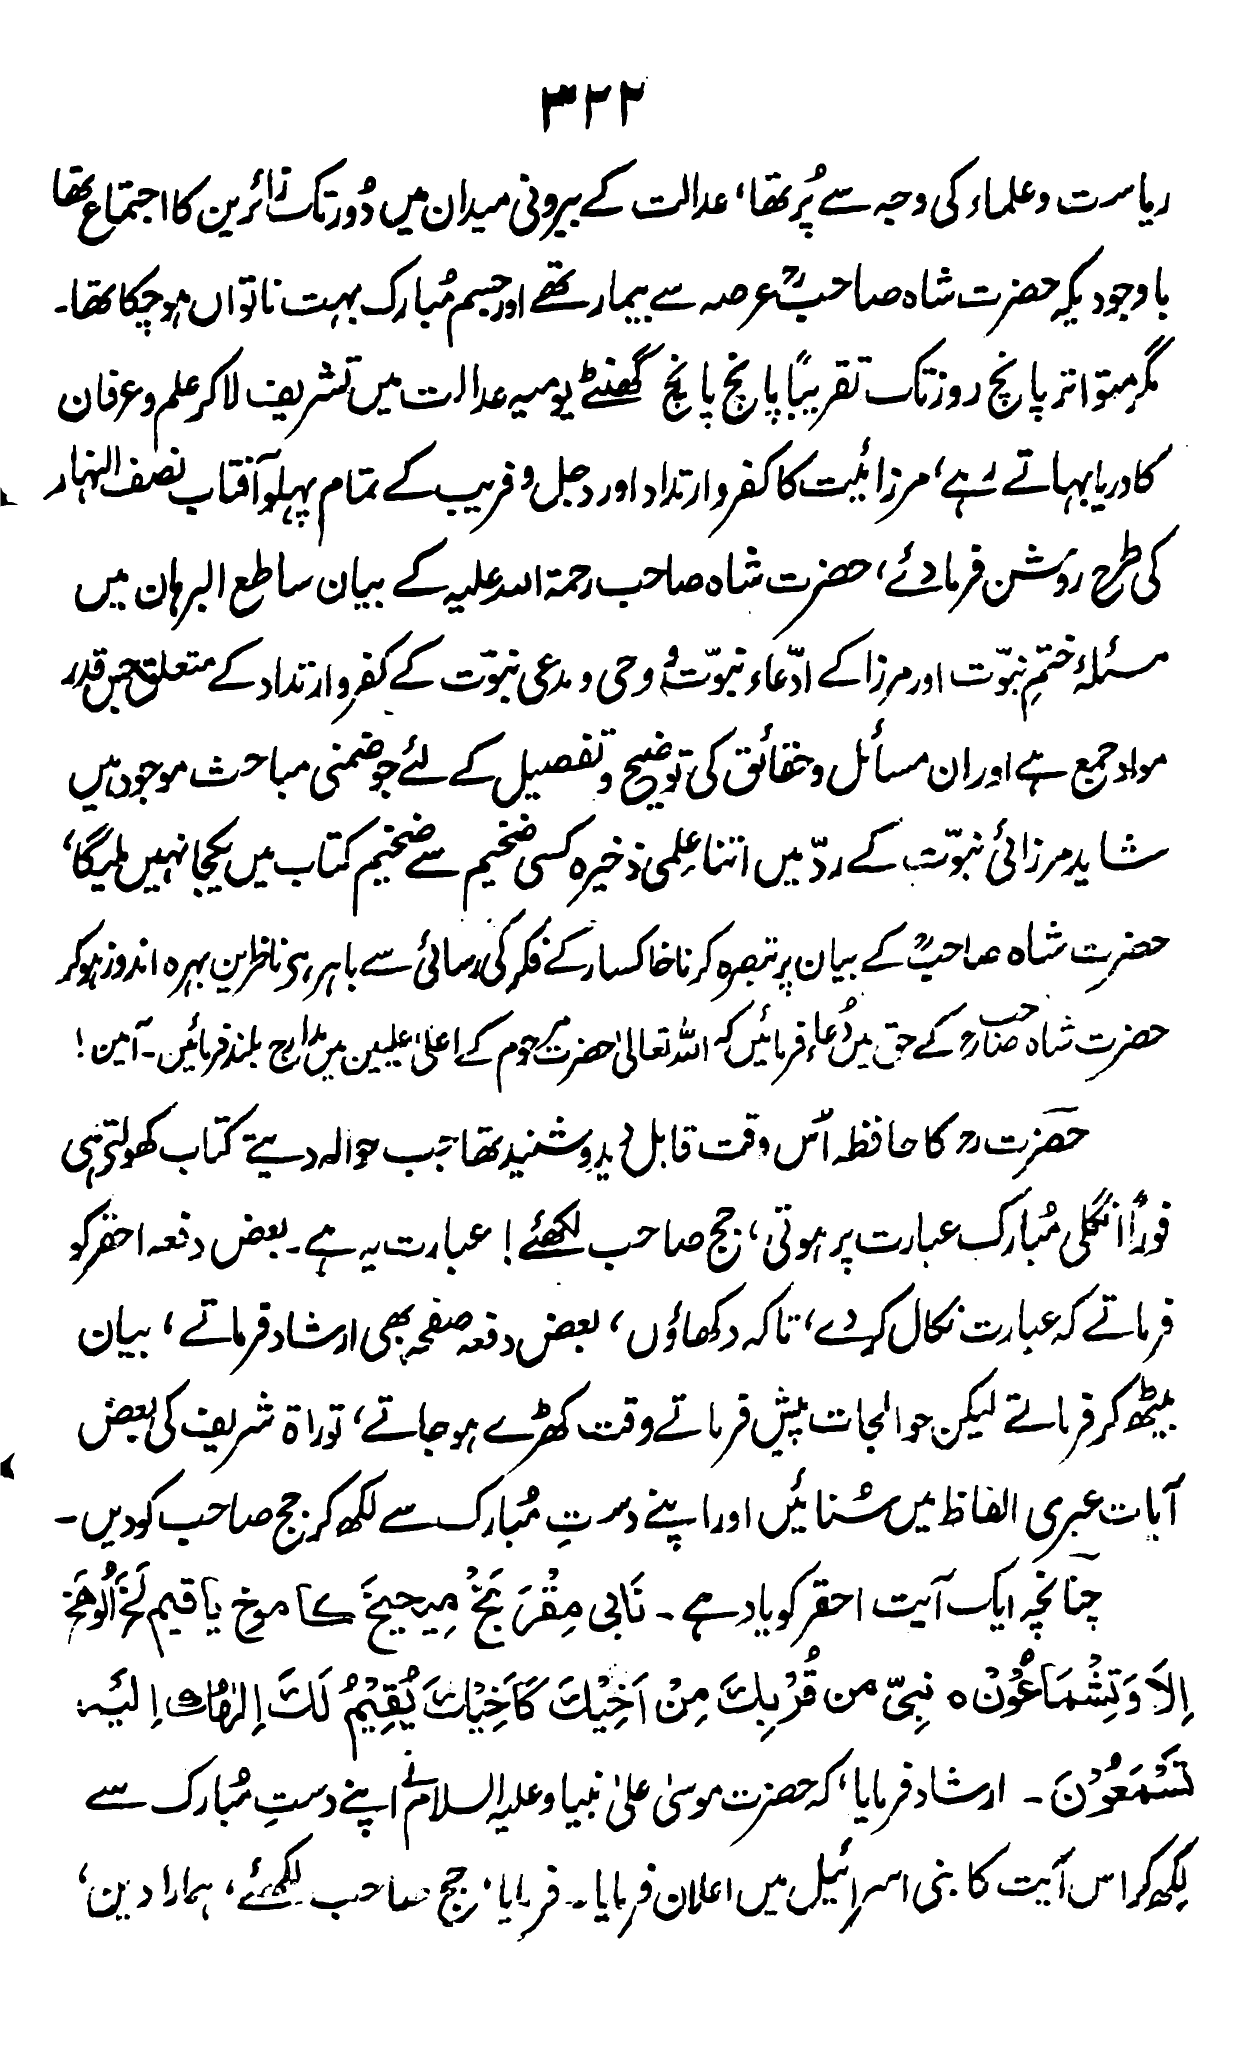 ۳۲۲
ریاست و علماء کی وجہ سے پُر تھا، عدالت کے بیرونی میدان میں دُور تک زائرین کا اجتماع تھا
باوجودیکہ حضرت شاہ صاحبؒ عرصہ سے بیمار تھے اور جسم مُبارک بہت ناتواں ہوچکا تھا۔
مگر متواتر پانچ روز تک تقریباً پانچ پانچ گھنٹے یومیہ عدالت میں تشریف لاکر علم و عرفان
کا دریا بہاتے رہے، مرزائیت کا کفر و ارتداد اور دجل و فریب کے تمام پہلو آفتاب نصف النہار
کی طرح روشن فرمادئے، حضرت شاہ صاحب رحمۃ اللہ علیہ کے بیان ساطع البرہان میں
مسئلہ ختمِ نبوّت اور مرزا کے ادّعاء نبوّت و وحی و مدعی نبوّت کے کفر و ارتداد کے متعلق جس قدر
مواد جمع ہے اور ان مسائل و حقائق کی توضیح و تفصیل کے لئے جو ضمنی مباحث موجود ہیں
شاید مرزائی نبوّت کے ردّ میں اتنا عِلمی ذخیرہ کسی ضخیم سے ضخیم کتاب میں یکجا نہیں ملیگا،
حضرت شاہ صاحبؒ کے بیان پر تبصرہ کرنا خاکسار کے فکر کی رسائی سے باہر ہے ناظرین بہرہ اندوز ہوکر
حضرت شاہ صاحب رح کے حق میں دُعاء فرمائیں کہ اللہ تعالیٰ حضرت مرحوم کے اعلیٰ علیین میں مدارج بلند فرمائیں۔ آمین!
حضرت رح کا حافظہ اُس وقت قابل دید و شنید تھا جب حوالہ دیتے کتاب کھولتے ہی
فوراً انگلی مُبارک عبارت پر ہوتی، جج صاحب لکھئے! عبارت یہ ہے۔ بعض دفعہ احقر کو
فرماتے کہ عبارت نکال کر دے، تاکہ دکھاؤں، بعض دفعہ صفحہ بھی ارشاد فرماتے، بیان
بیٹھ کر فرماتے لیکن حوالجات پیش فرماتے وقت کھڑے ہوجاتے، توراۃ شریف کی بعض
آیات عبری الفاظ میں سُنائیں اور اپنے دستِ مُبارک سے لکھ کر جج صاحب کو دیں۔
چنانچہ ایک آیت احقر کو یاد ہے۔ نَابِی مِقْرَ بَخْ مِیحیخَ کا موخ یاقیم لَخَ الُوهَخَ
اِلاَ وَتِشْمَاعُوْن ٥ نبِیّ من قُرْبِكَ مِنْ اَخِیْكَ كَاَخِیْكَ یُقِیْمُ لَكَ اِلٰهُكَ اِلَیْہِ
تَسْمَعُوْنَ۔ ارشاد فرمایا، کہ حضرت موسیٰ علیٰ نبینا و علیہ السلام نے اپنے دستِ مُبارک سے
لکھ کر اس آیت کا بنی اسرائیل میں اعلان فرمایا۔ فرمایا، جج صاحب لکھئے، ہمارا دین،